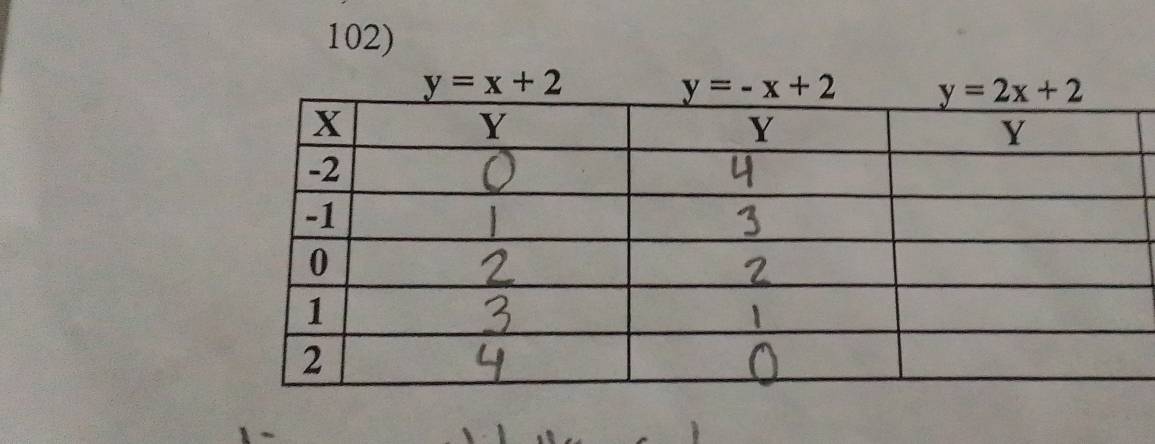 102)
y = x + 2 y = - x + 2 y = 2x + 2
X Y Y Y
-2 0 4
-1 1 3
0 2 2
1 3 1
2 4 0